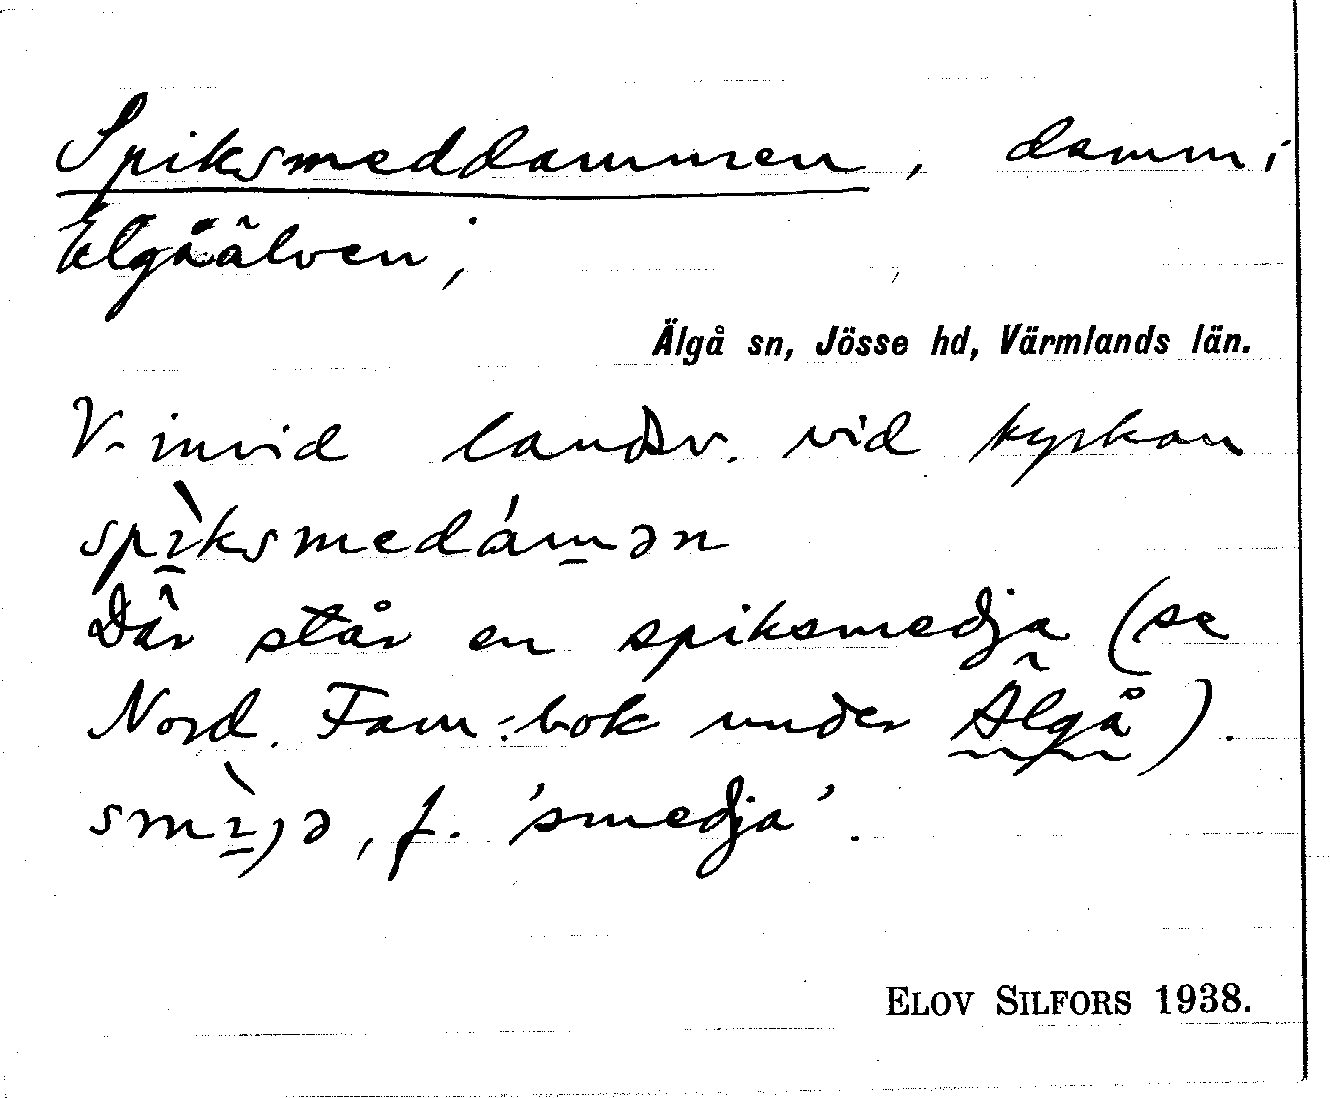 Spiksmeddammen, damm i
Elgåälven;
Älgå sn, Jösse hd, Värmlands län.
V. invid landsv. vid kyrkan
spı̀ksmedámən
Där står en spiksmedja (se
Nord. Fam:bok under Älgå).
smı̀jə, f. 'smedja'.
ELOV SILFORS 1938.